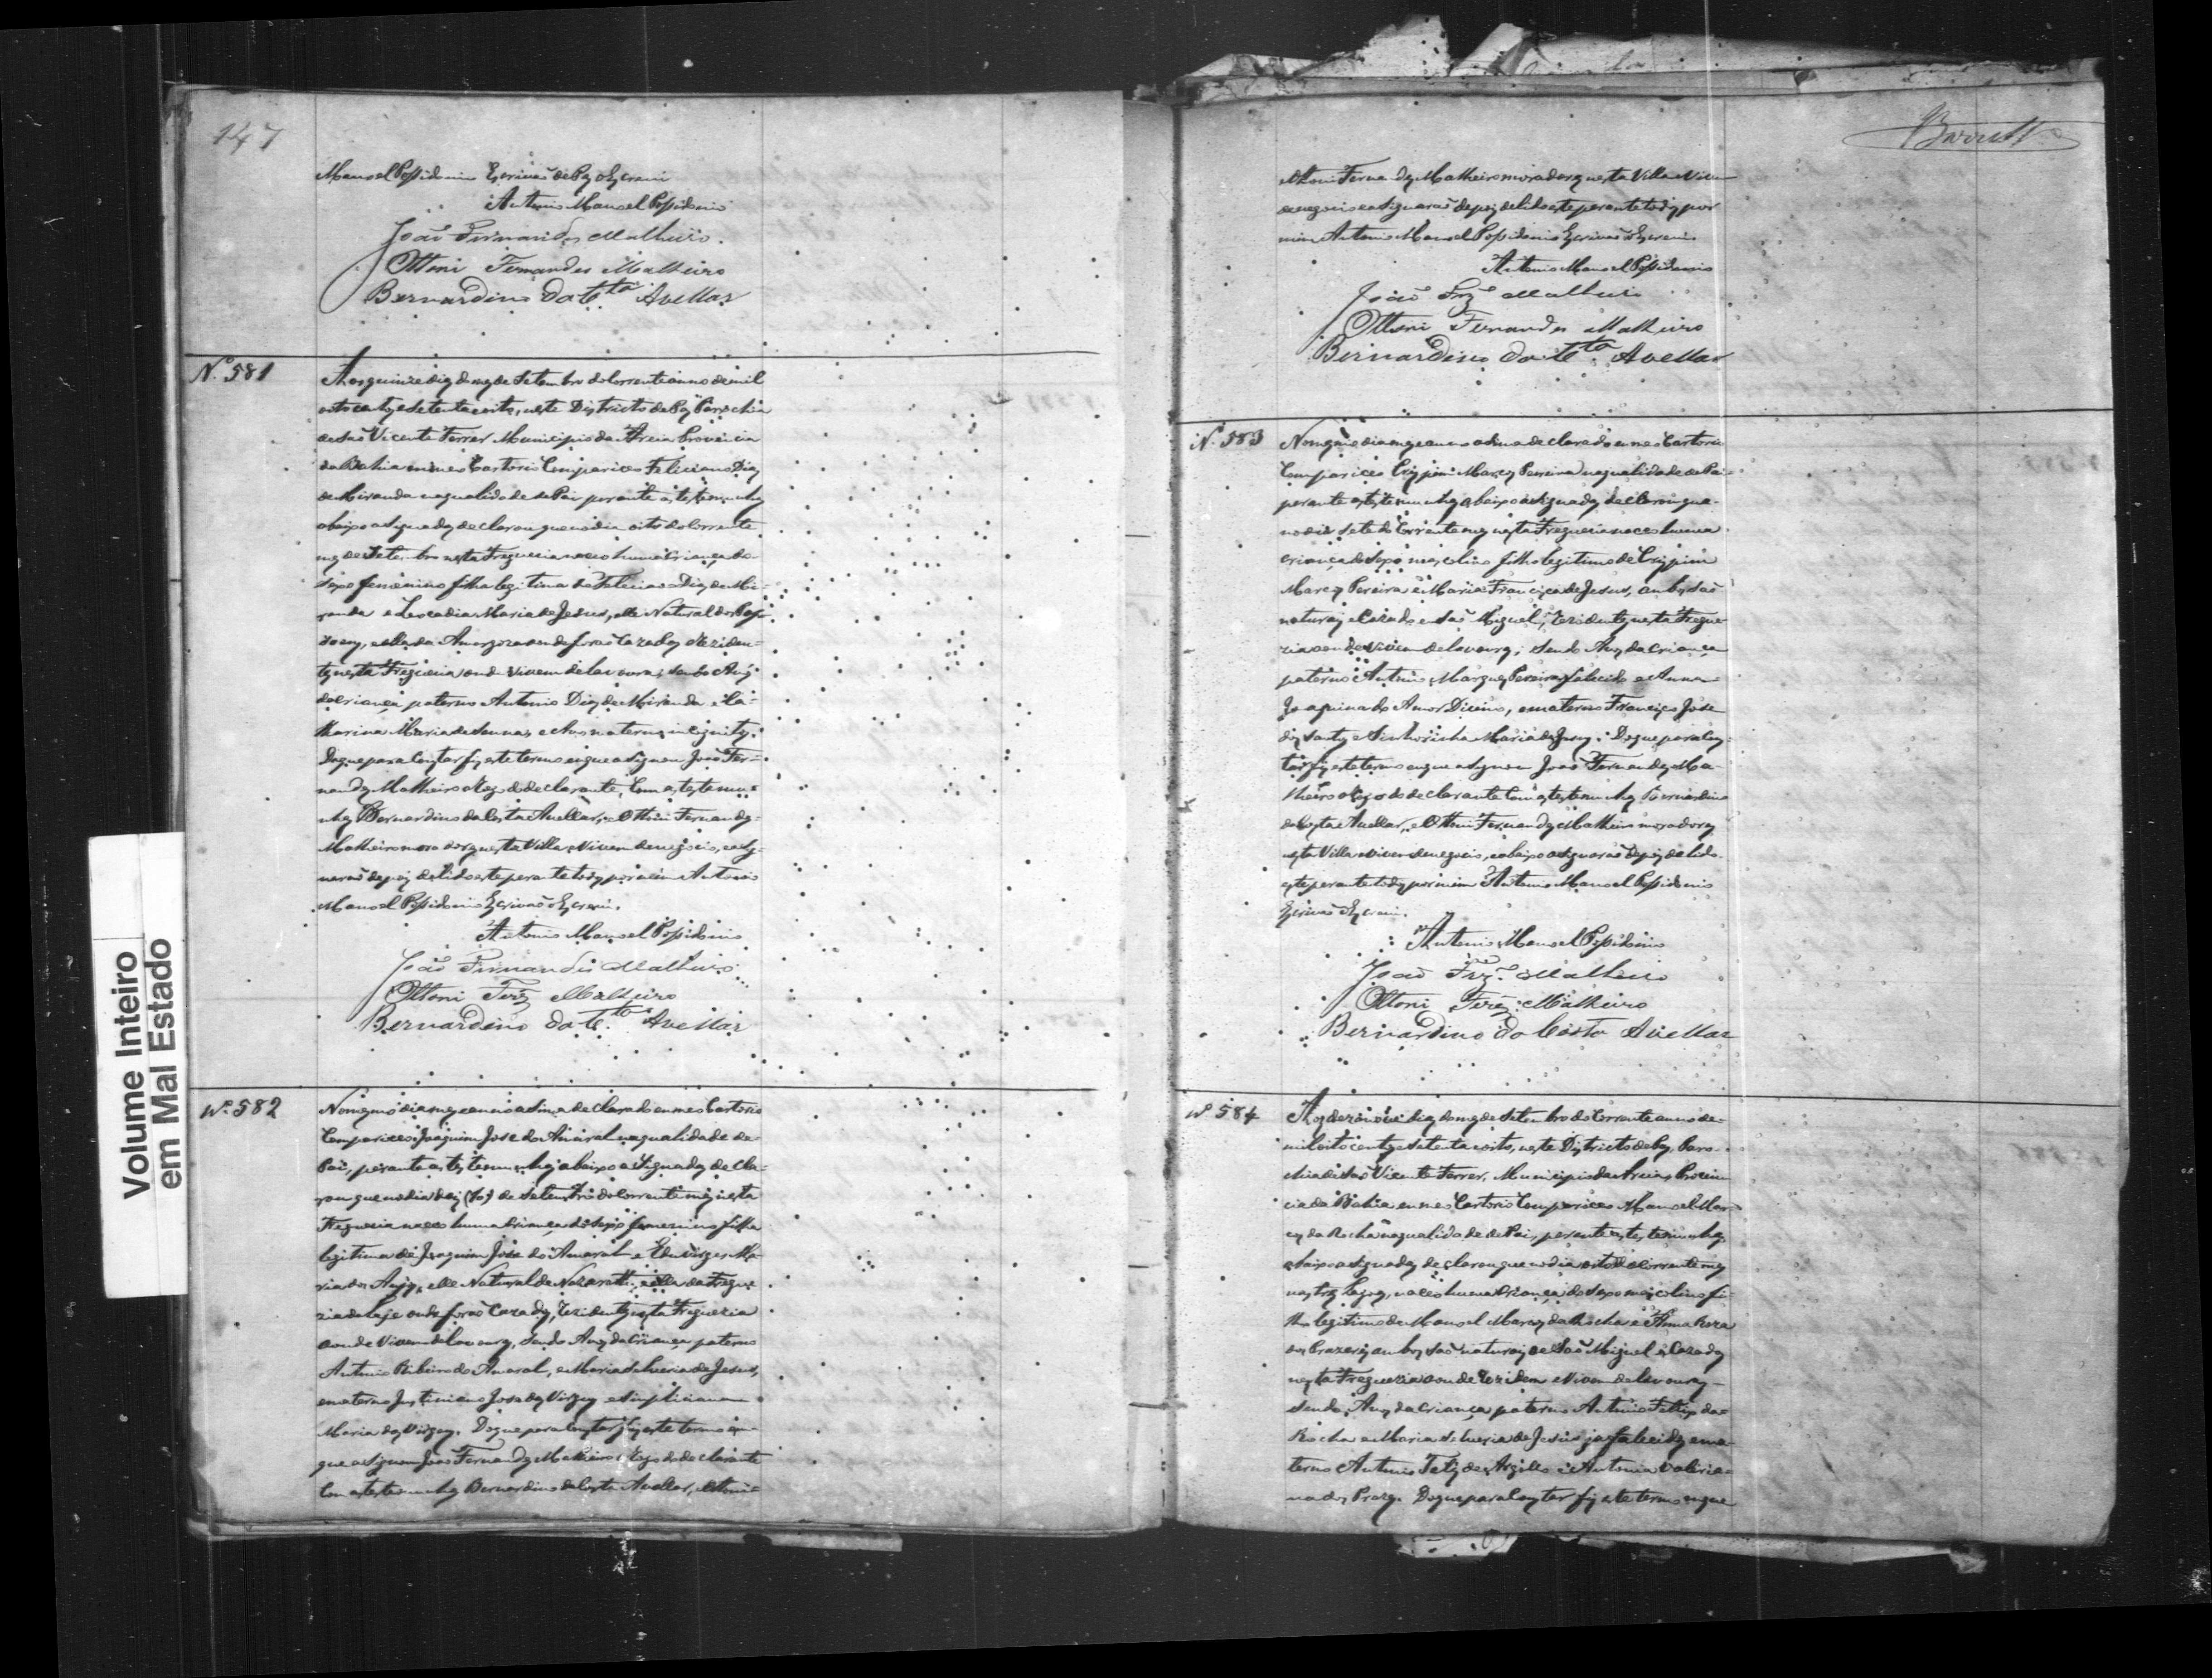 147
Manoel Possidonio Escrivaõ de Paz o Escrevi
Antonio Manoel Possidonio
Joaõ Fernandes Malheiro.
Ottoni Fernandes Malheiro
Bernardino da Cta Avellar
Nº 581
Aos quinze dias do mez de Setembro do Corrente anno de mil
oito centos e setenta e oito, neste Districto de Paz Parochia
de Saõ Vicente Ferrer Municipio da Areia Provincia
da Bahia em meo Cartorio Compariceo Feliciano Dias
de Miranda na qualidade de Pai perante as testemunhas
abaixo asignadas declarou que no dia oito do Corrente
mez de Setembro nesta Freguezia naceo huma Criança do
Sexo femenino filha legitima de Feliciano Dias de Mi-
randa e Leocadia Maria de Jesus, elle Natural de
e ella da Amargoza aonde foraõ Cazados e Reziden-
tes nesta Freguezia onde Vivem de lavoura; sendo Avós
da Criança paterno Antonio Dias de Miranda e Ca-
tharina Maria de Senna, e Avos maternos incognitos.
Do que para Constar fiz este termo em que asignou Joaõ Fer-
nandes Malheiro a Rogo do declarante, Com as testemu-
nhas Bernardino da Costa Avellar, e Ottoni Fernandes
Malheiro moradores nesta Villa e Vivem de negocio, e asig-
naraõ depois de lido este perante todos por mim Antonio
Manoel Possidonio Escrivaõ o Escrevi.
Antonio Manoel Possidonio
Joaõ Fernandes Malheiro
Ottoni Frz Malheiro
Bernardino da Cta Avellar
Nº 582
No mesmo dia mez e anno acima declarado em meo Cartorio
Compariceo Joaquim Jose do Amaral na qualidade de
Pai, perante as testemunhas abaixo asignadas decla-
rou que no dia dez (10) de Setembro do Corrente mez nesta
Freguezia naceo huma Criança do Sexo femenino filha
legitima de Joaquim Jose do Amaral e Eduvirges Ma-
ria dos Anjos, elle Natural de Nazareth, e ella da Fregue-
zia de Laje onde foraõ Cazados, Rezidentes nesta Freguezia
aonde Vivem de lavoura, sendo Avos da Criança paterno
Antonio Ribeiro do Amaral, e Maria de Jesus,
e materno Justiniano Jose das Virgens e Simpliciana
Maria das Virgens. Do que para Constar fiz este termo em
que asignou Joaõ Fernandes Malheiro a Rogo do declarante
Com as testemunhas Bernardino da Costa Avellar, e Ottoni
Ottoni Fernandes Malheiro moradores nesta Villa e Vivem
de negocio e asignaraõ depois de lido este perante todos por
mim Antonio Manoel Possidonio Escrivaõ o Escrevi.
Antonio Manoel Possidonio
Joaõ Frz Malheiro
Ottoni Fernandes Malheiro
Bernardino da Cta Avellar
Nº 583
No mesmo dia mez e anno acima declarado em meo Cartorio
Compariceo Crispim Marques Pereira na qualidade de Pai
perante as testemunhas abaixo asignadas declarou que
no dia sete do Corrente mez nesta Freguezia naceo huma
criança do Sexo mascolino filho legitimo de Crispim
Marques Pereira e Maria Francisca de Jesus, ambos saõ
naturais e Cazados em Saõ Miguel, Rezidentes nesta Fregue-
zia aonde Vivem de lavoura; sendo Avos da Criança
paterno Antonio Marques Pereira falecido e Anna
Joaquina do Amor Divino, e materno Francisco Jose
dos Santos e Sinhorinha Maria de Jesus. Do que para Cons-
tar fiz este termo em que asignou Joaõ Fernandes Ma-
lheiro a Rogo do declarante Com as testemunhas Bernardino
da Costa Avellar, e Ottoni Fernandes Malheiro moradores
nesta Villa e vivem de negocio, e abaixo asignaraõ depois de lido
este perante todos por mim Antonio Manoel Possidonio
Escrivaõ o Escrevi.
Antonio Manoel Possidonio
Joaõ Frz. Malheiro
Ottoni Frz. Malheiro
Bernardino da Costa Avellar
Nº 584
Aos dezanove dias do mez de Setembro do Corrente anno de
mil oito centos e setenta e oito, neste Districto de Paz, Paro-
chia de Saõ Vicente Ferrer, Municipio da Areia, Provin-
cia da Bahia em meo Cartorio Compariceo Manoel Mar-
ques da Rocha na qualidade de Pai, perante as testemunhas
abaixo asignadas declarou que no dia oito do Corrente mez
nas tres Lagoas, naceo huma Criança do Sexo mascolino fi-
lho legitimo de Manoel Marques da Rocha e Anna Roza
dos Prazeres ambos saõ naturais de Saõ Miguel e Cazados
nesta Freguezia aonde Rezidem e Vivem de lavoura
sendo Avos da Criança paterno Antonio Felix da
Rocha e Maria de Jesus ja falecidos e ma-
terno Antonio Felix de e Antonia Valeria-
na dos Prazeres. Do que para Constar fiz este termo em que
Volume Inteiro
em Mal Estado